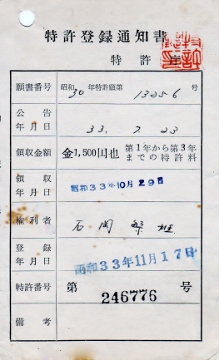 特許登録通知書
特許庁
願書番号 昭和30年特許願第13256号
公告年月日 33. 7. 23
領収金額 金1,500円也 第1年から第3年までの特許料
領収年月日 昭和33年10月29日
権利者 石岡
登録年月日 昭和33年11月17日
特許番号 第246776号
備考